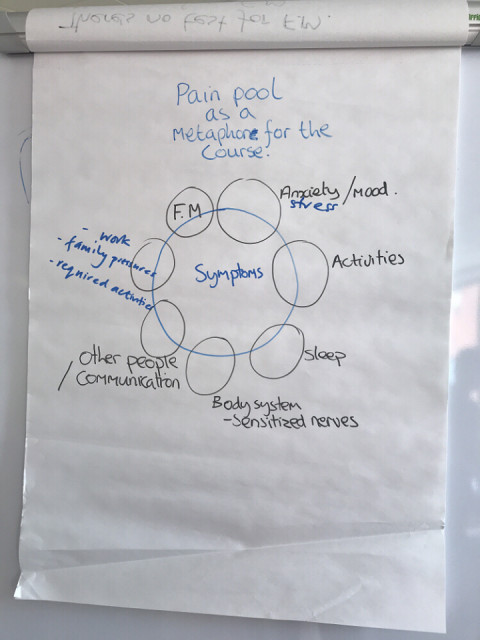 Pain pool
as a
Metaphore for the
Course.
F.M
Anxiety/Mood.
stress
- work
- family pressures
- required activities
Symptoms
Activities
Other people
/Communication
Sleep
Body system
-Sensitized nerves